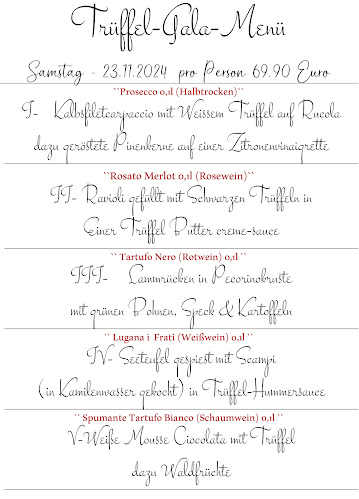 Trüffel-Gala-Menü
Samstag - 23.11.2024 pro Person 69.90 Euro
``Prosecco 0,1l (Halbtrocken)``
I- Kalbsfiletcarpaccio mit Weissem Trüffel auf Rucola
dazu geröstete Pinenkerne auf einer Zitronenvinaigrette
``Rosato Merlot 0,1l (Rosewein)``
II- Ravioli gefüllt mit Schwarzen Trüffeln in
Einer Trüffel Butter creme-sauce
`` Tartufo Nero (Rotwein) 0,1l ``
III- Lammrücken in Pecorinokruste
mit grünen Bohnen, Speck & Kartoffeln
`` Lugana i Frati (Weißwein) 0,1l ``
IV- Seeteufel gespiest mit Scampi
(in Kamilenwasser gekocht) in Trüffel-Hummersauce
`` Spumante Tartufo Bianco (Schaumwein) 0,1l ``
V-Weiße Mousse Ciocolata mit Trüffel
dazu Waldfrüchte